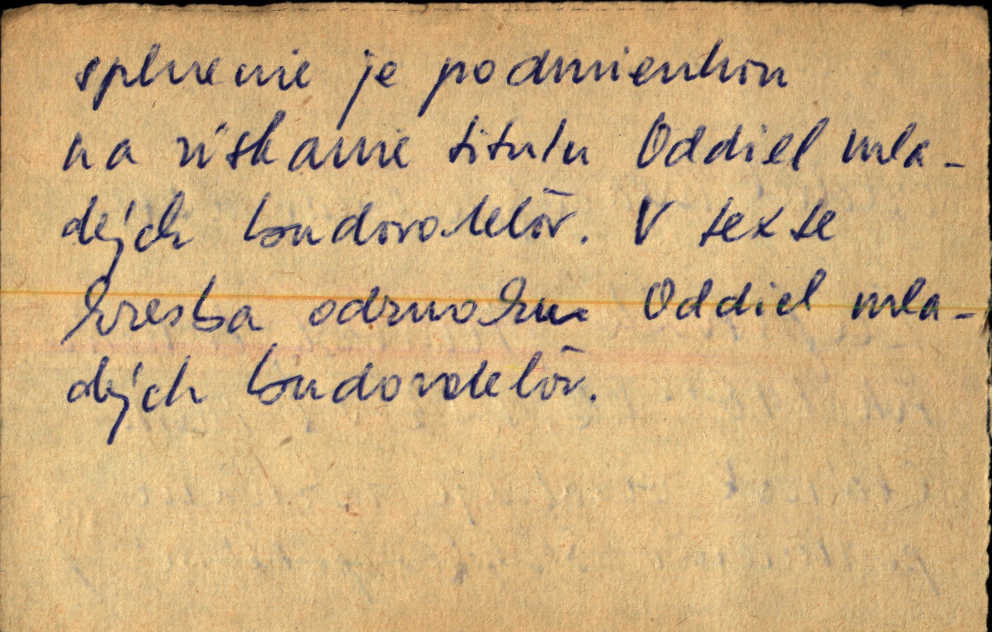 splnenie je podmienkou
na získanie titulu Oddiel mla-
dých budovateľov. V texte
kresba odznaku Oddiel mla-
dých budovateľov.